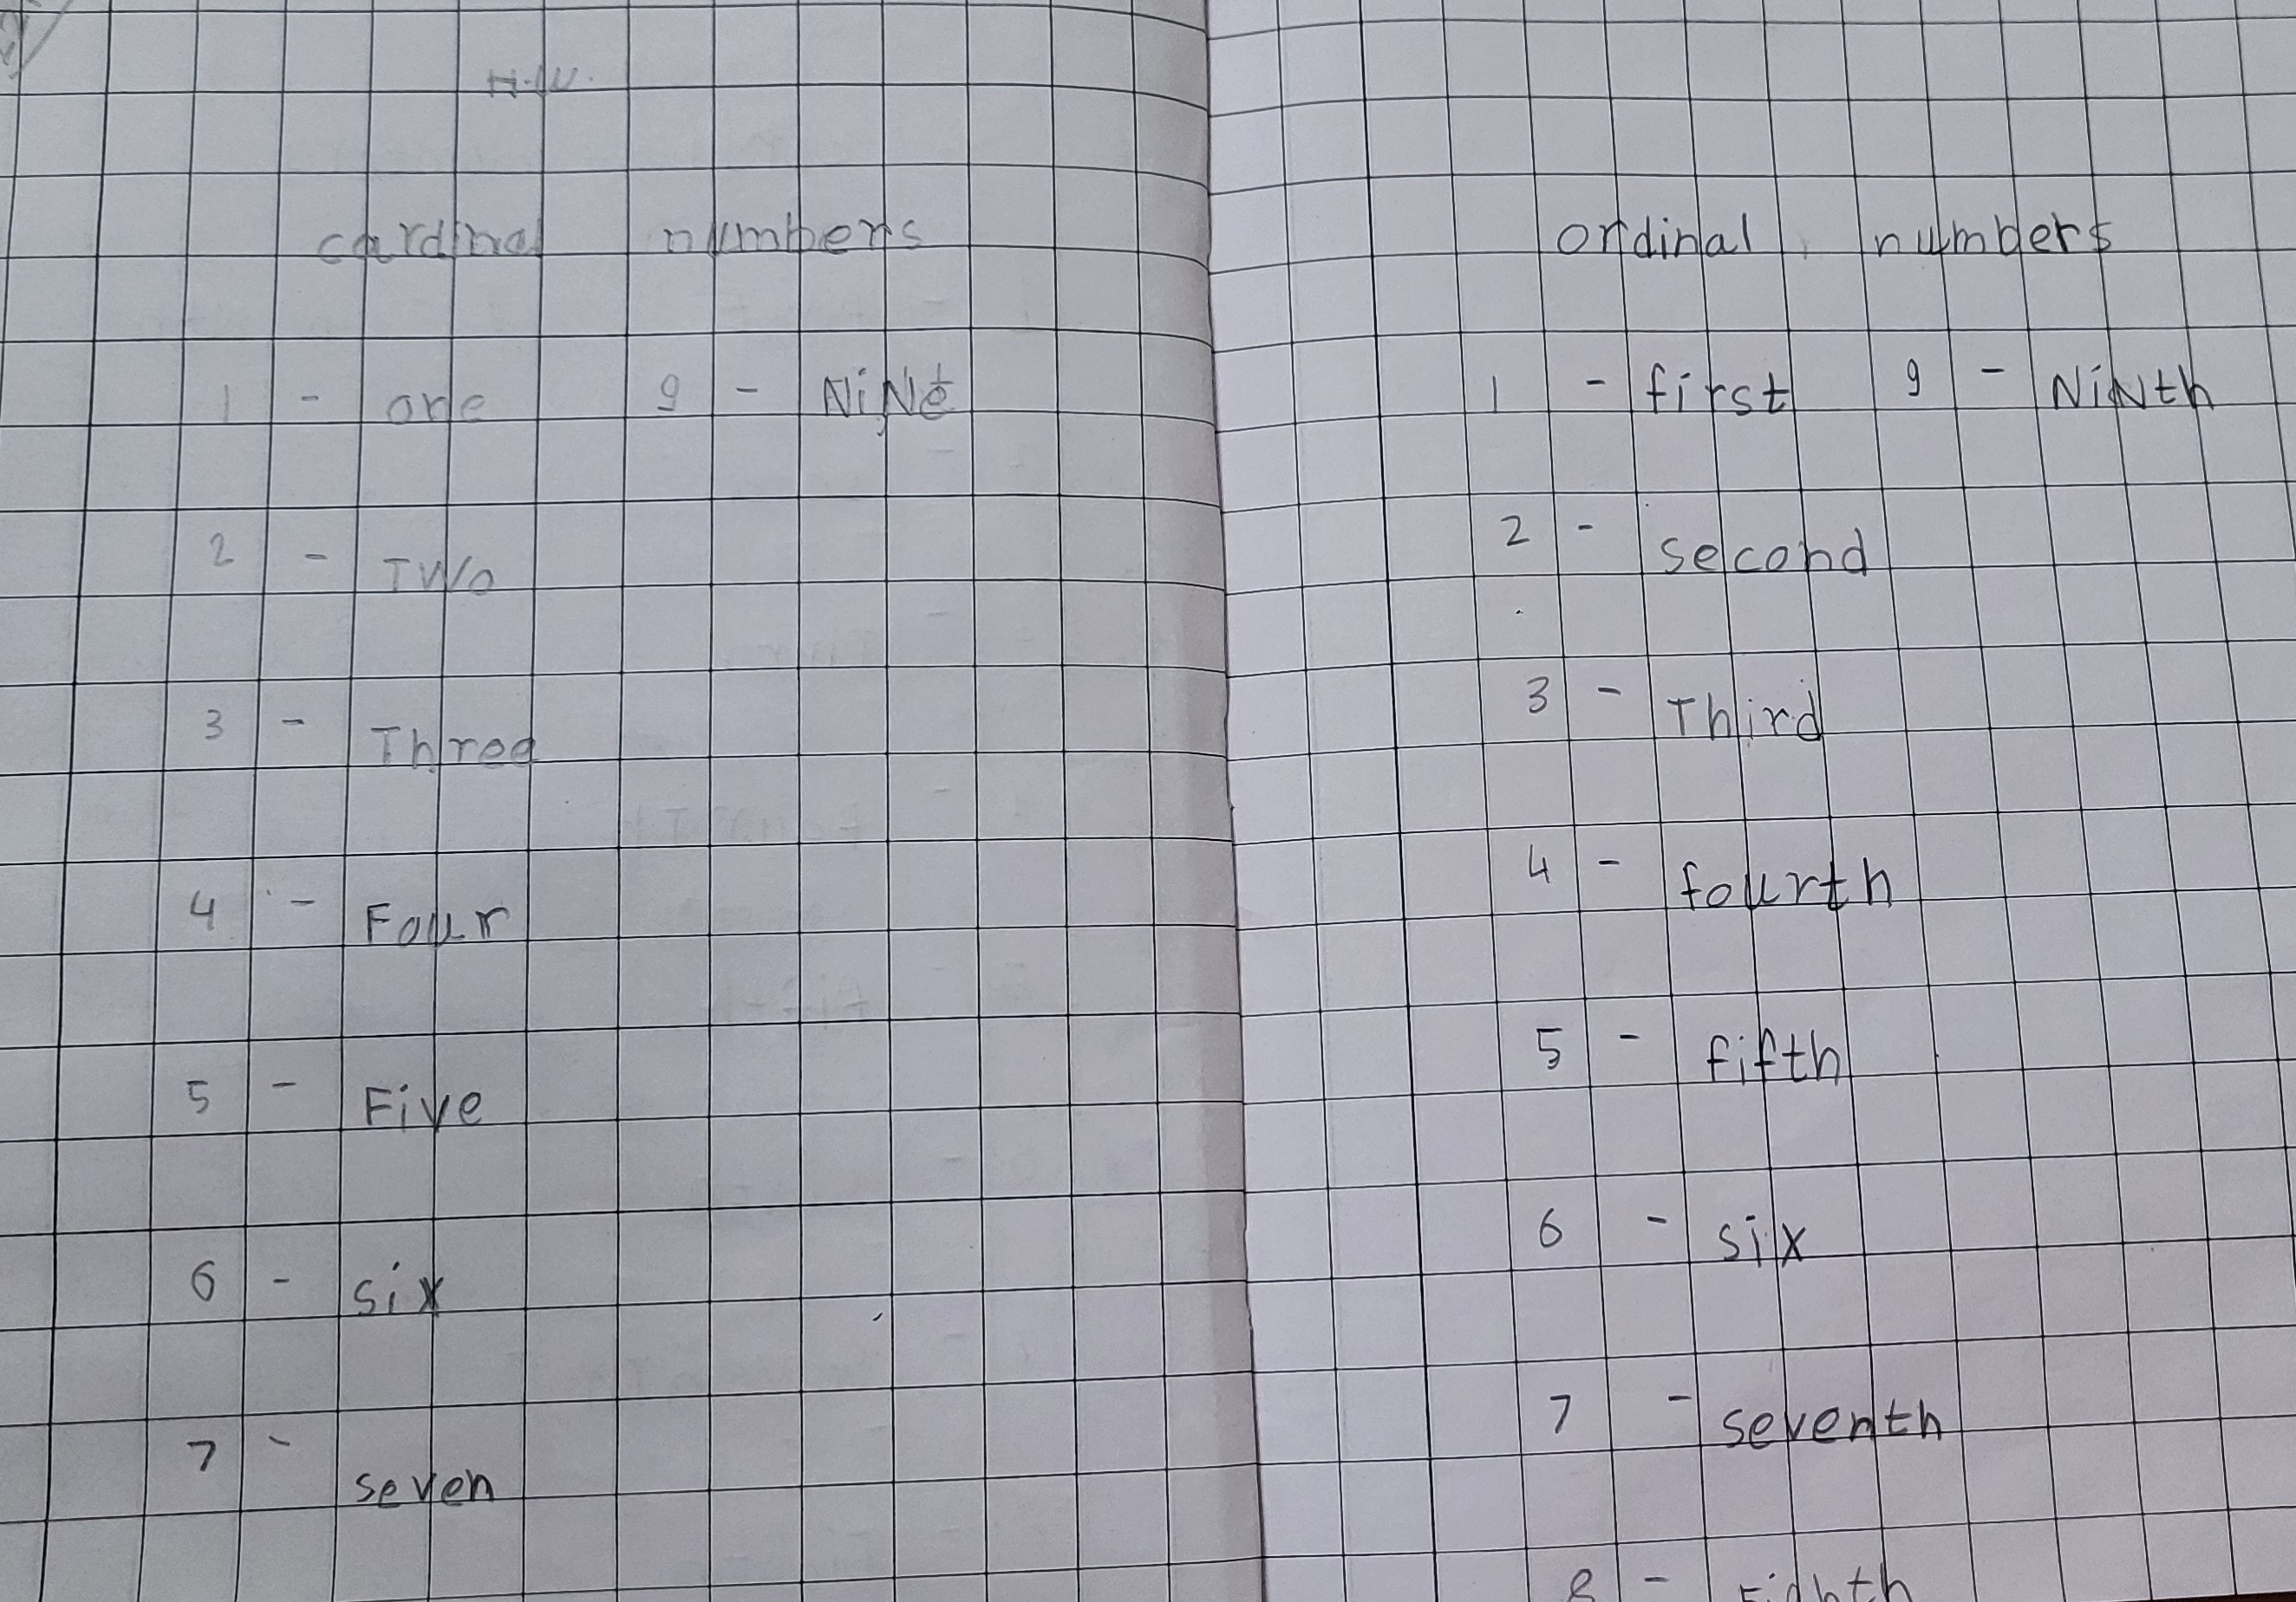 H.W.
cardinal numbers
1 - one 9 - NiNe
2 - TWo
3 - Three
4 - Four
5 - Five
6 - six
7 - seven
ordinal numbers
1 - first 9 - NiNth
2 - second
3 - Third
4 - fourth
5 - fifth
6 - six
7 - seventh
8 - Eighth